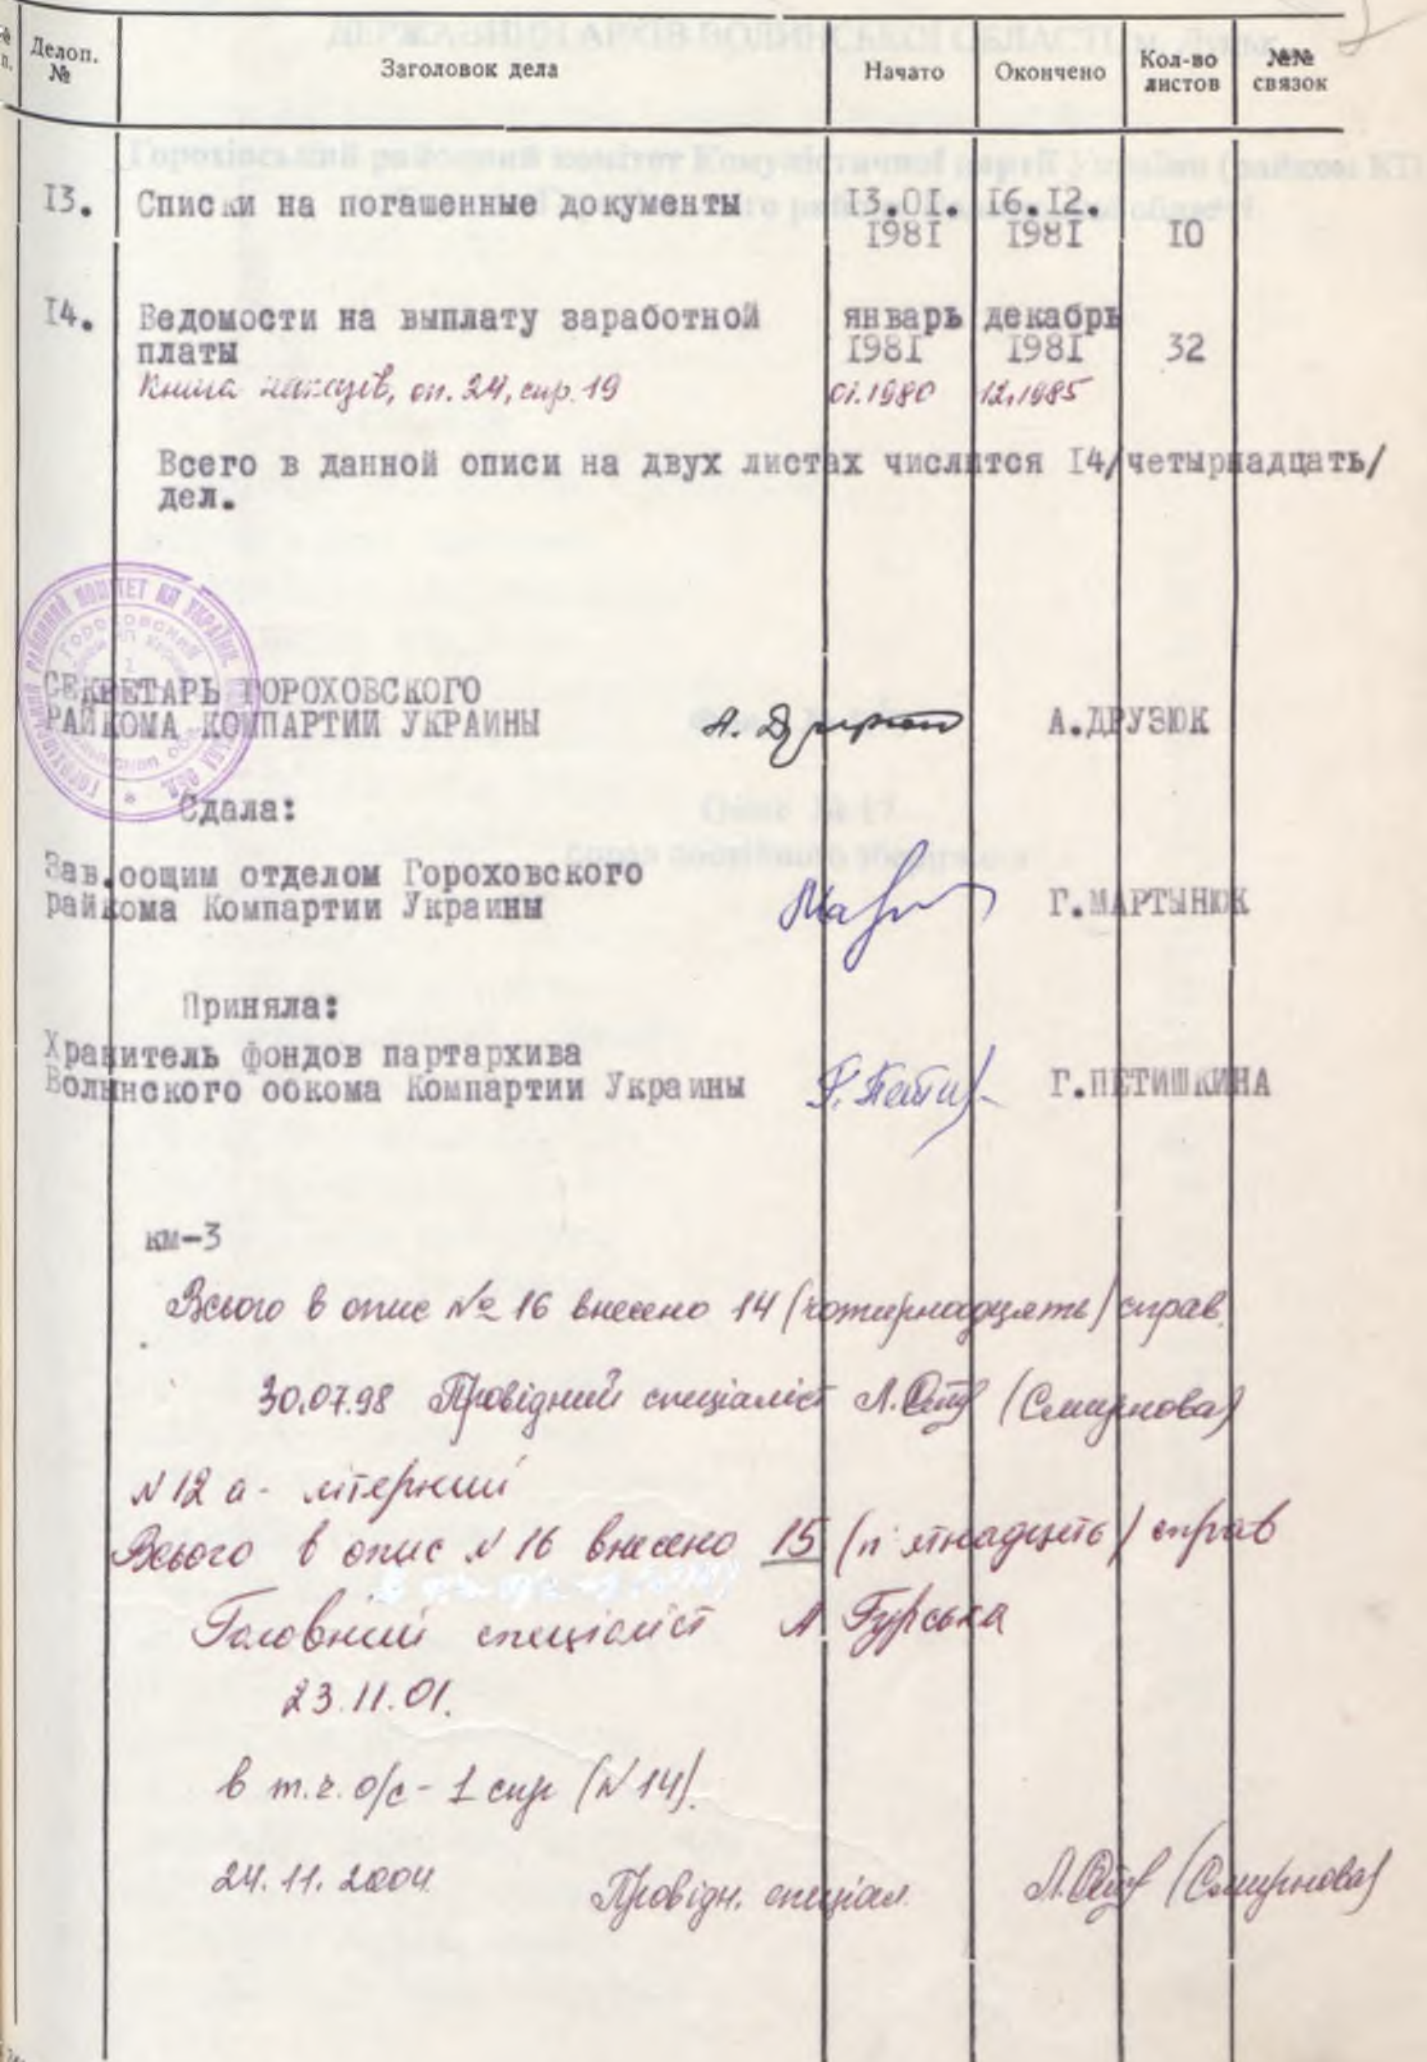 Делоп. № Заголовок дела Начато Окончено Кол-во листов №№ связок
13. Списки на погашенные документы 13.01. 16.12.
1981 1981 10
14. Ведомости на выплату заработной январь декабрь
платы 1981 1981 32
Книга наказів, оп. 24, спр. 19 01.1980 12.1985
Всего в данной описи на двух листах числится 14/четырнадцать/
дел.
СЕКРЕТАРЬ ГОРОХОВСКОГО
РАЙКОМА КОМПАРТИИ УКРАИНЫ А.ДРУЗЮК
Сдала:
Зав.общим отделом Гороховского
райкома Компартии Украины Г.МАРТЫНЮК
Приняла:
Хранитель фондов партархива
Волынского обкома Компартии Украины Г.ПЕТИШКИНА
км-3
Всього в опис № 16 внесено 14 (чотирнадцять) справ.
30.07.98 Провідний спеціаліст Л. (Смирнова)
N 12 а - літерний
Всього в опис N 16 внесено 15 (п'ятнадцять) справ
Головний спеціаліст Гурська
23.11.01.
в т.ч. о/с - 1 спр (N 14).
24.11.2004 Провідн. спеціал. Л. (Смирнова)